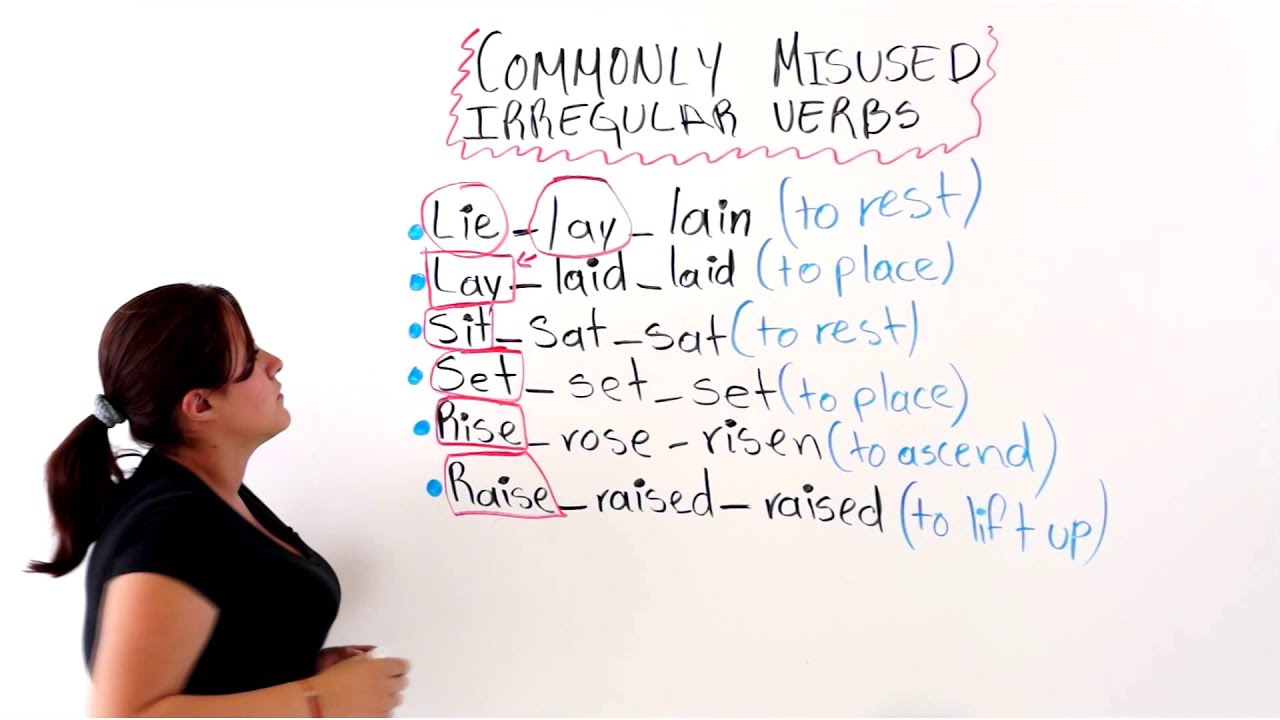 COMMONLY MISUSED
IRREGULAR VERBS
Lie - lay - lain (to rest)
Lay - laid - laid (to place)
Sit - sat - sat (to rest)
Set - set - set (to place)
Rise - rose - risen (to ascend)
Raise - raised - raised (to lift up)